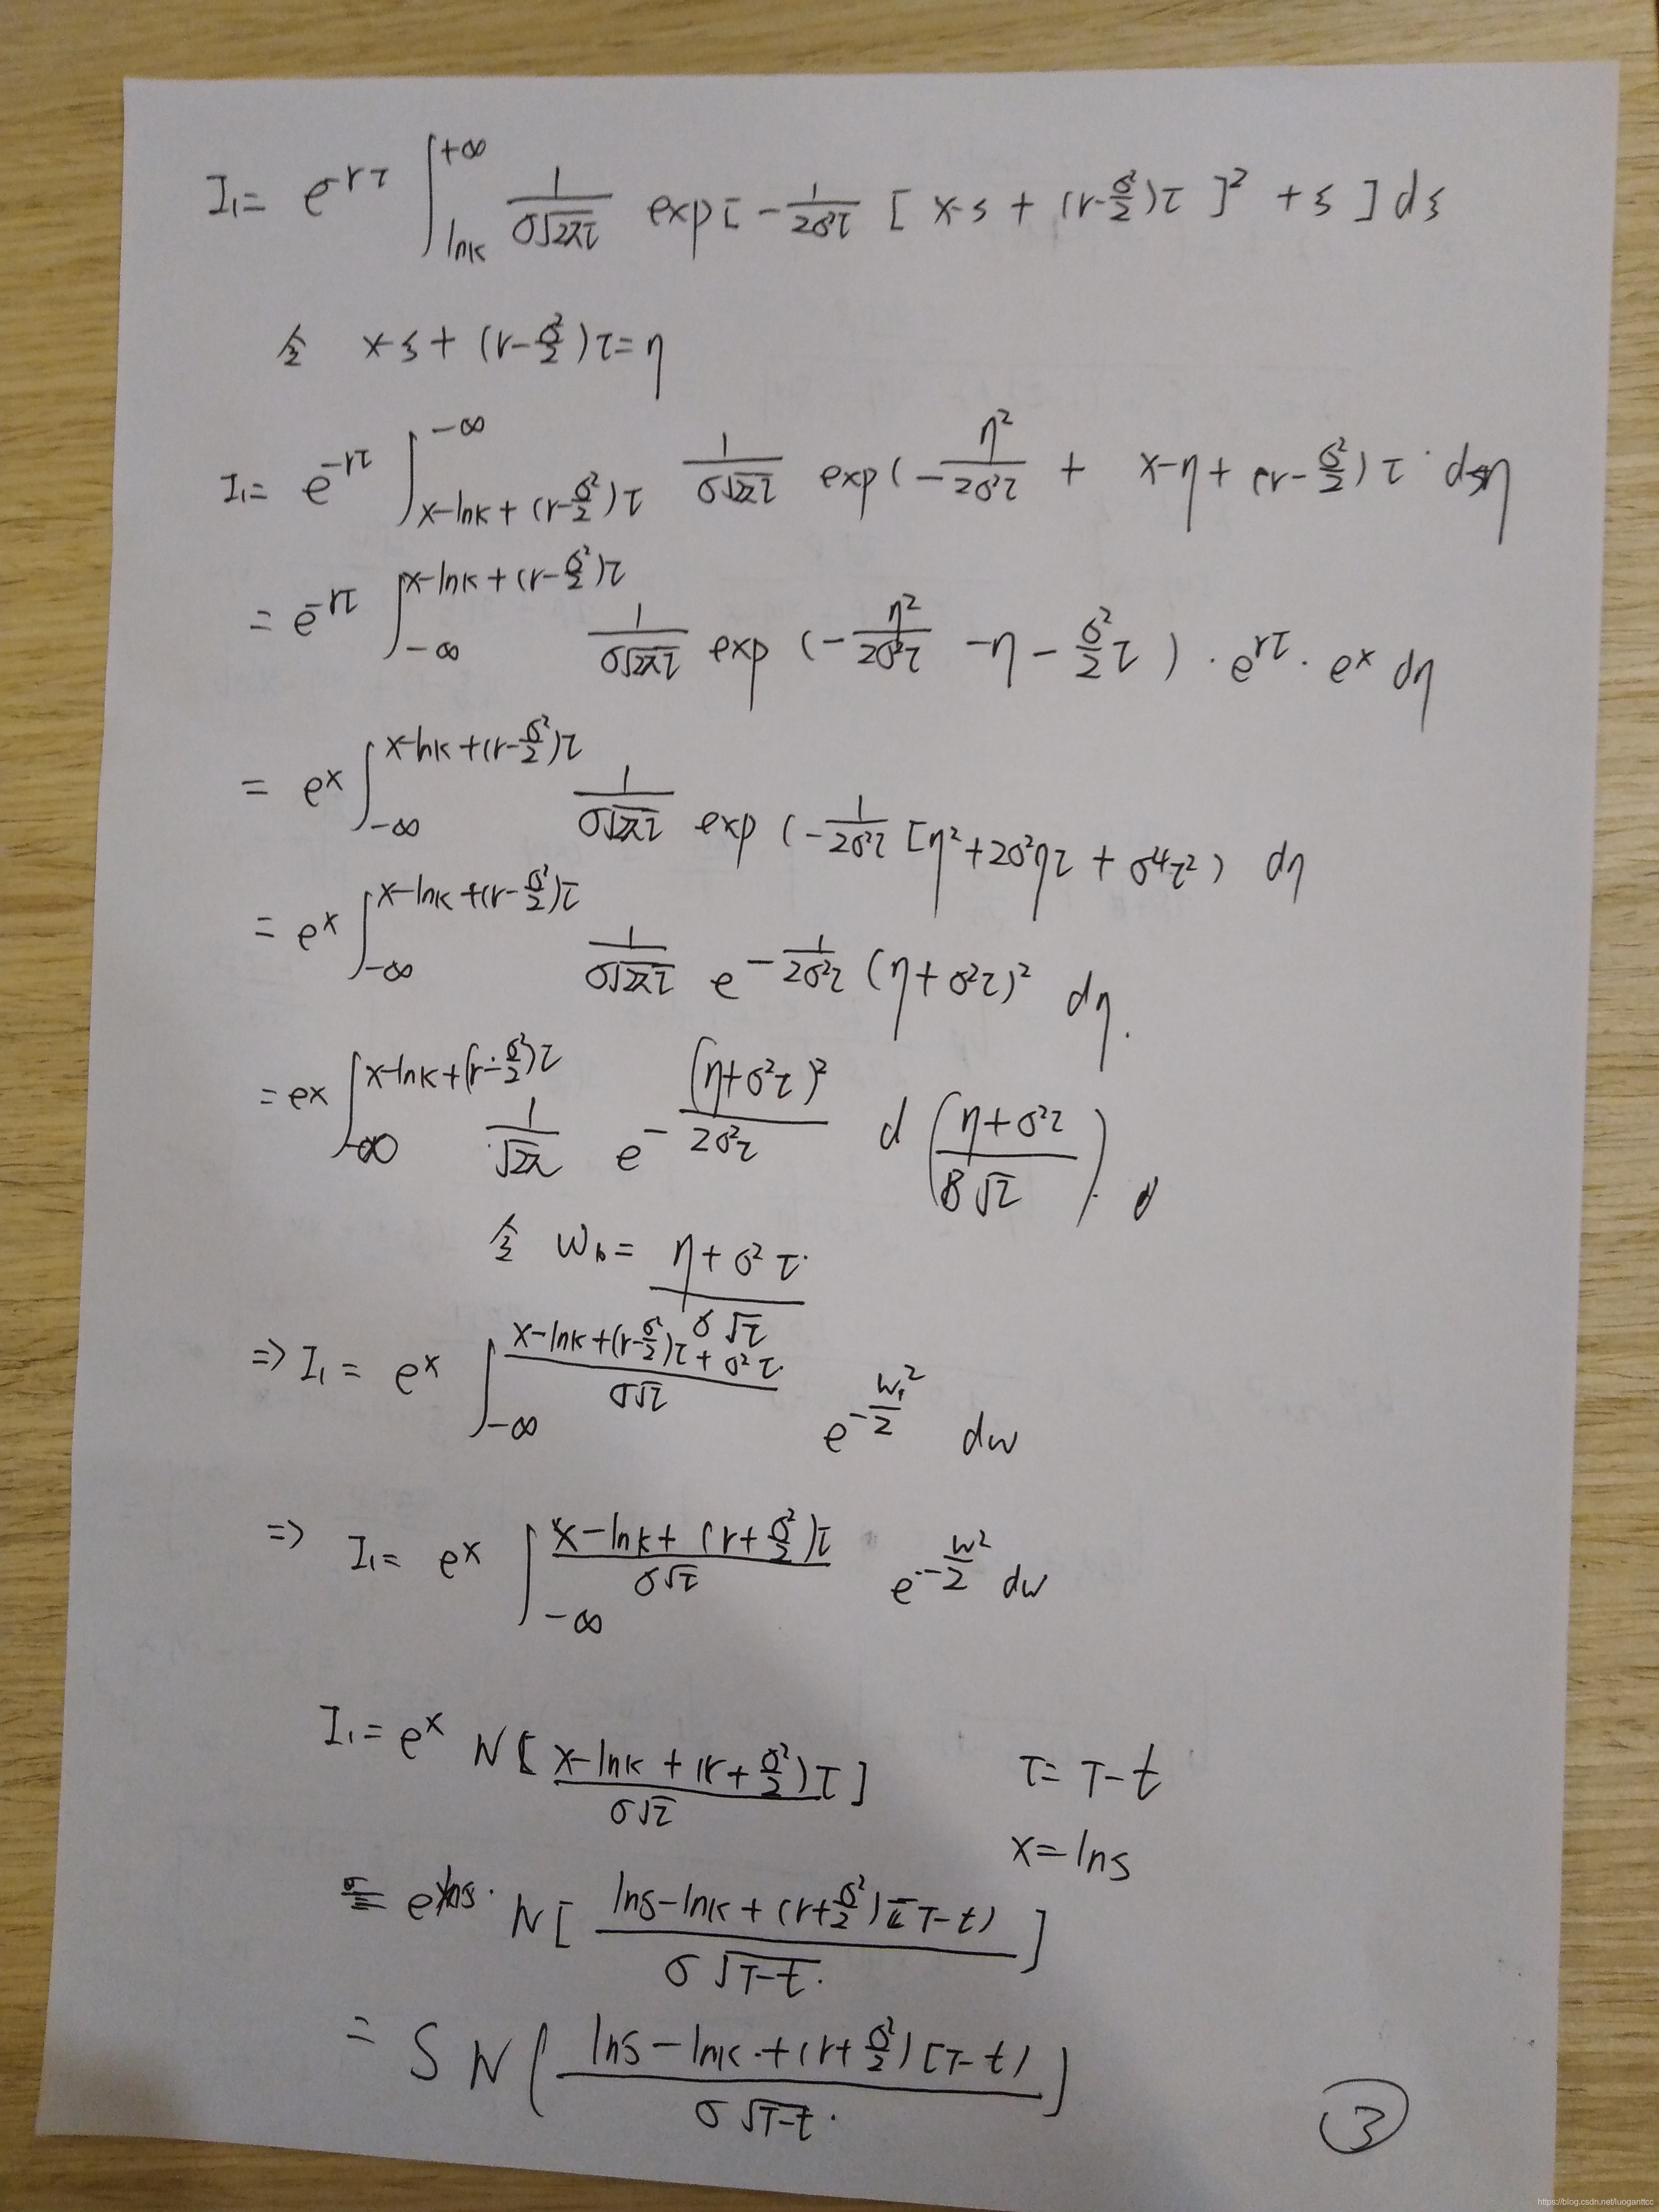 I₁ = e^{-rτ} ∫_{lnK}^{+∞} \frac{1}{σ√(2πτ)} exp[ -\frac{1}{2σ²τ} [ x-ξ + (r-\frac{σ²}{2})τ ]² + ξ ] dξ
令 x-ξ + (r-\frac{σ²}{2})τ = η
I₁ = e^{-rτ} ∫_{x-lnK+(r-\frac{σ²}{2})τ}^{-∞} \frac{1}{σ√(2πτ)} exp( -\frac{η²}{2σ²τ} + x-η + (r-\frac{σ²}{2})τ · dη
= e^{-rτ} ∫_{-∞}^{x-lnK+(r-\frac{σ²}{2})τ} \frac{1}{σ√(2πτ)} exp( -\frac{η²}{2σ²τ} - η - \frac{σ²}{2}τ ) · e^{rτ} · e^x dη
= e^x ∫_{-∞}^{x-lnK+(r-\frac{σ²}{2})τ} \frac{1}{σ√(2πτ)} exp( -\frac{1}{2σ²τ} [η² + 2σ²ητ + σ⁴τ²) dη
= e^x ∫_{-∞}^{x-lnK+(r-\frac{σ²}{2})τ} \frac{1}{σ√(2πτ)} e^{-\frac{1}{2σ²τ}(η+σ²τ)²} dη.
= e^x ∫_{-∞}^{x-lnK+(r-\frac{σ²}{2})τ} \frac{1}{√(2π)} e^{-\frac{(η+σ²τ)²}{2σ²τ}} d(\frac{η+σ²τ}{σ√τ}).
令 W₁ = \frac{η+σ²τ}{σ√τ}
=> I₁ = e^x ∫_{-∞}^{\frac{x-lnK+(r-\frac{σ²}{2})τ+σ²τ}{σ√τ}} e^{-\frac{W₁²}{2}} dw
=> I₁ = e^x ∫_{-∞}^{\frac{x-lnK+(r+\frac{σ²}{2})τ}{σ√τ}} e^{-\frac{w²}{2}} dw
I₁ = e^x N[ \frac{x-lnK+(r+\frac{σ²}{2})τ}{σ√τ} ] τ = T-t
x = lnS
= e^{lnS} · N[ \frac{lnS-lnK+(r+\frac{σ²}{2})[T-t)}{σ√(T-t)} ]
= S N[ \frac{lnS-lnK+(r+\frac{σ²}{2})[T-t)}{σ√(T-t)} ]
③
https://blog.csdn.net/luoganttcc